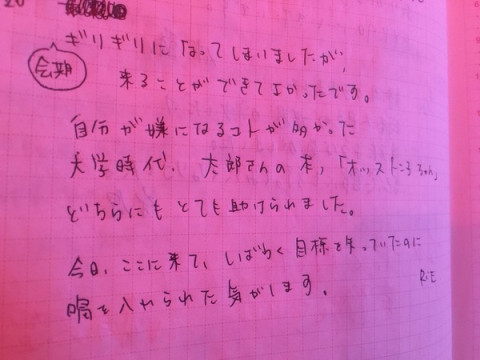 20
ギリギリになってしまいましたが、
会期
来ることができてよかったです。
自分が嫌になるコトが多かった
大学時代、太郎さんの本,「オッス トン子ちゃん」
どちらにもとても助けられました。
今日、ここに来て、しばらく目標を失っていたのに
喝を入れられた気がします。
RiE